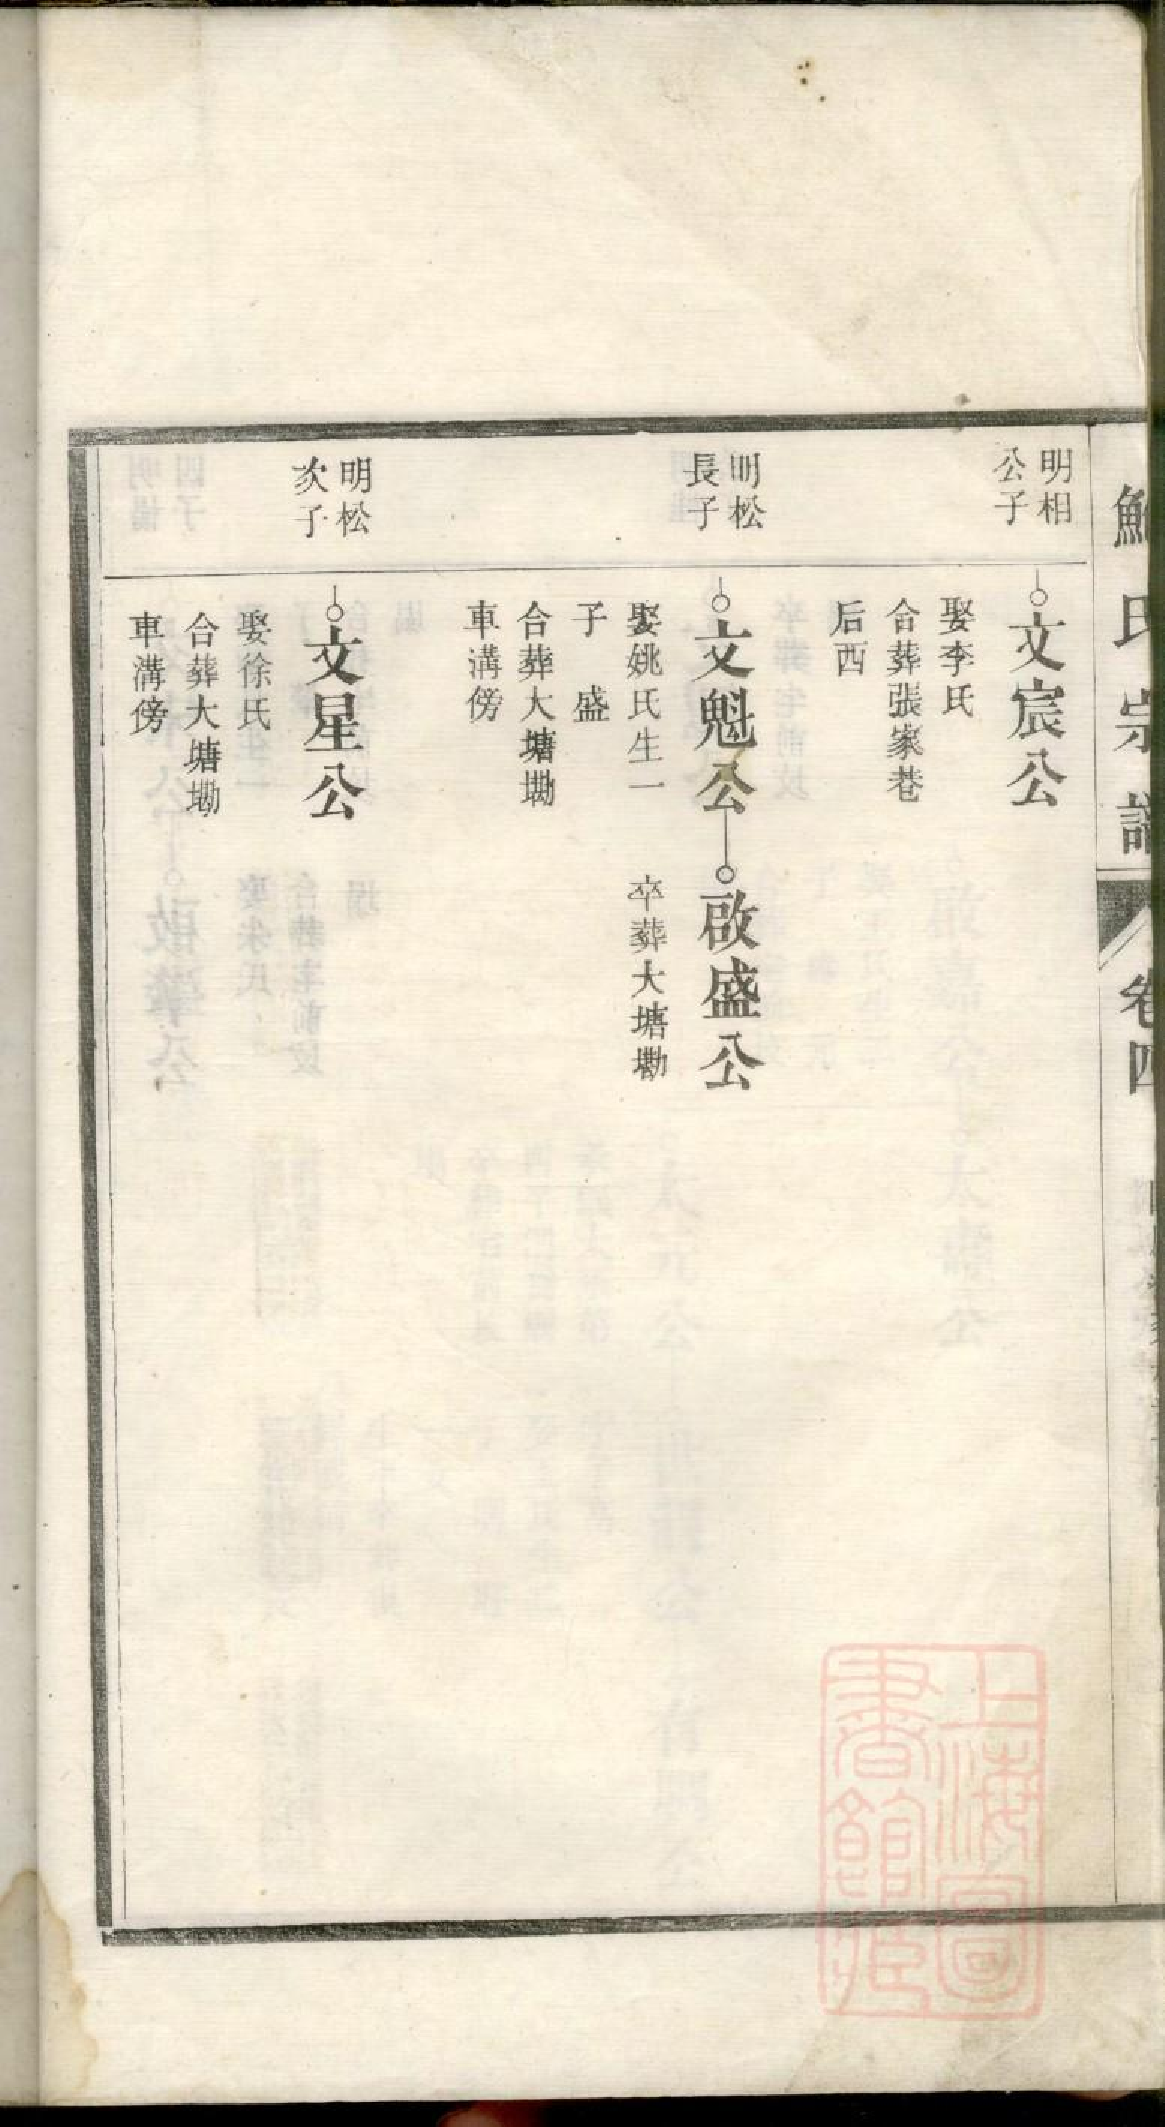 氏宗譜
卷四
明相
公子
文宸公
娶李氏
合葬張家巷
后西
明松
長子
文魁公
娶姚氏生一
子 盛
合葬大塘墈
車溝傍
啟盛公
卒葬大塘墈
明松
次子
文星公
娶徐氏
合葬大塘墈
車溝傍
上海圖
書館藏